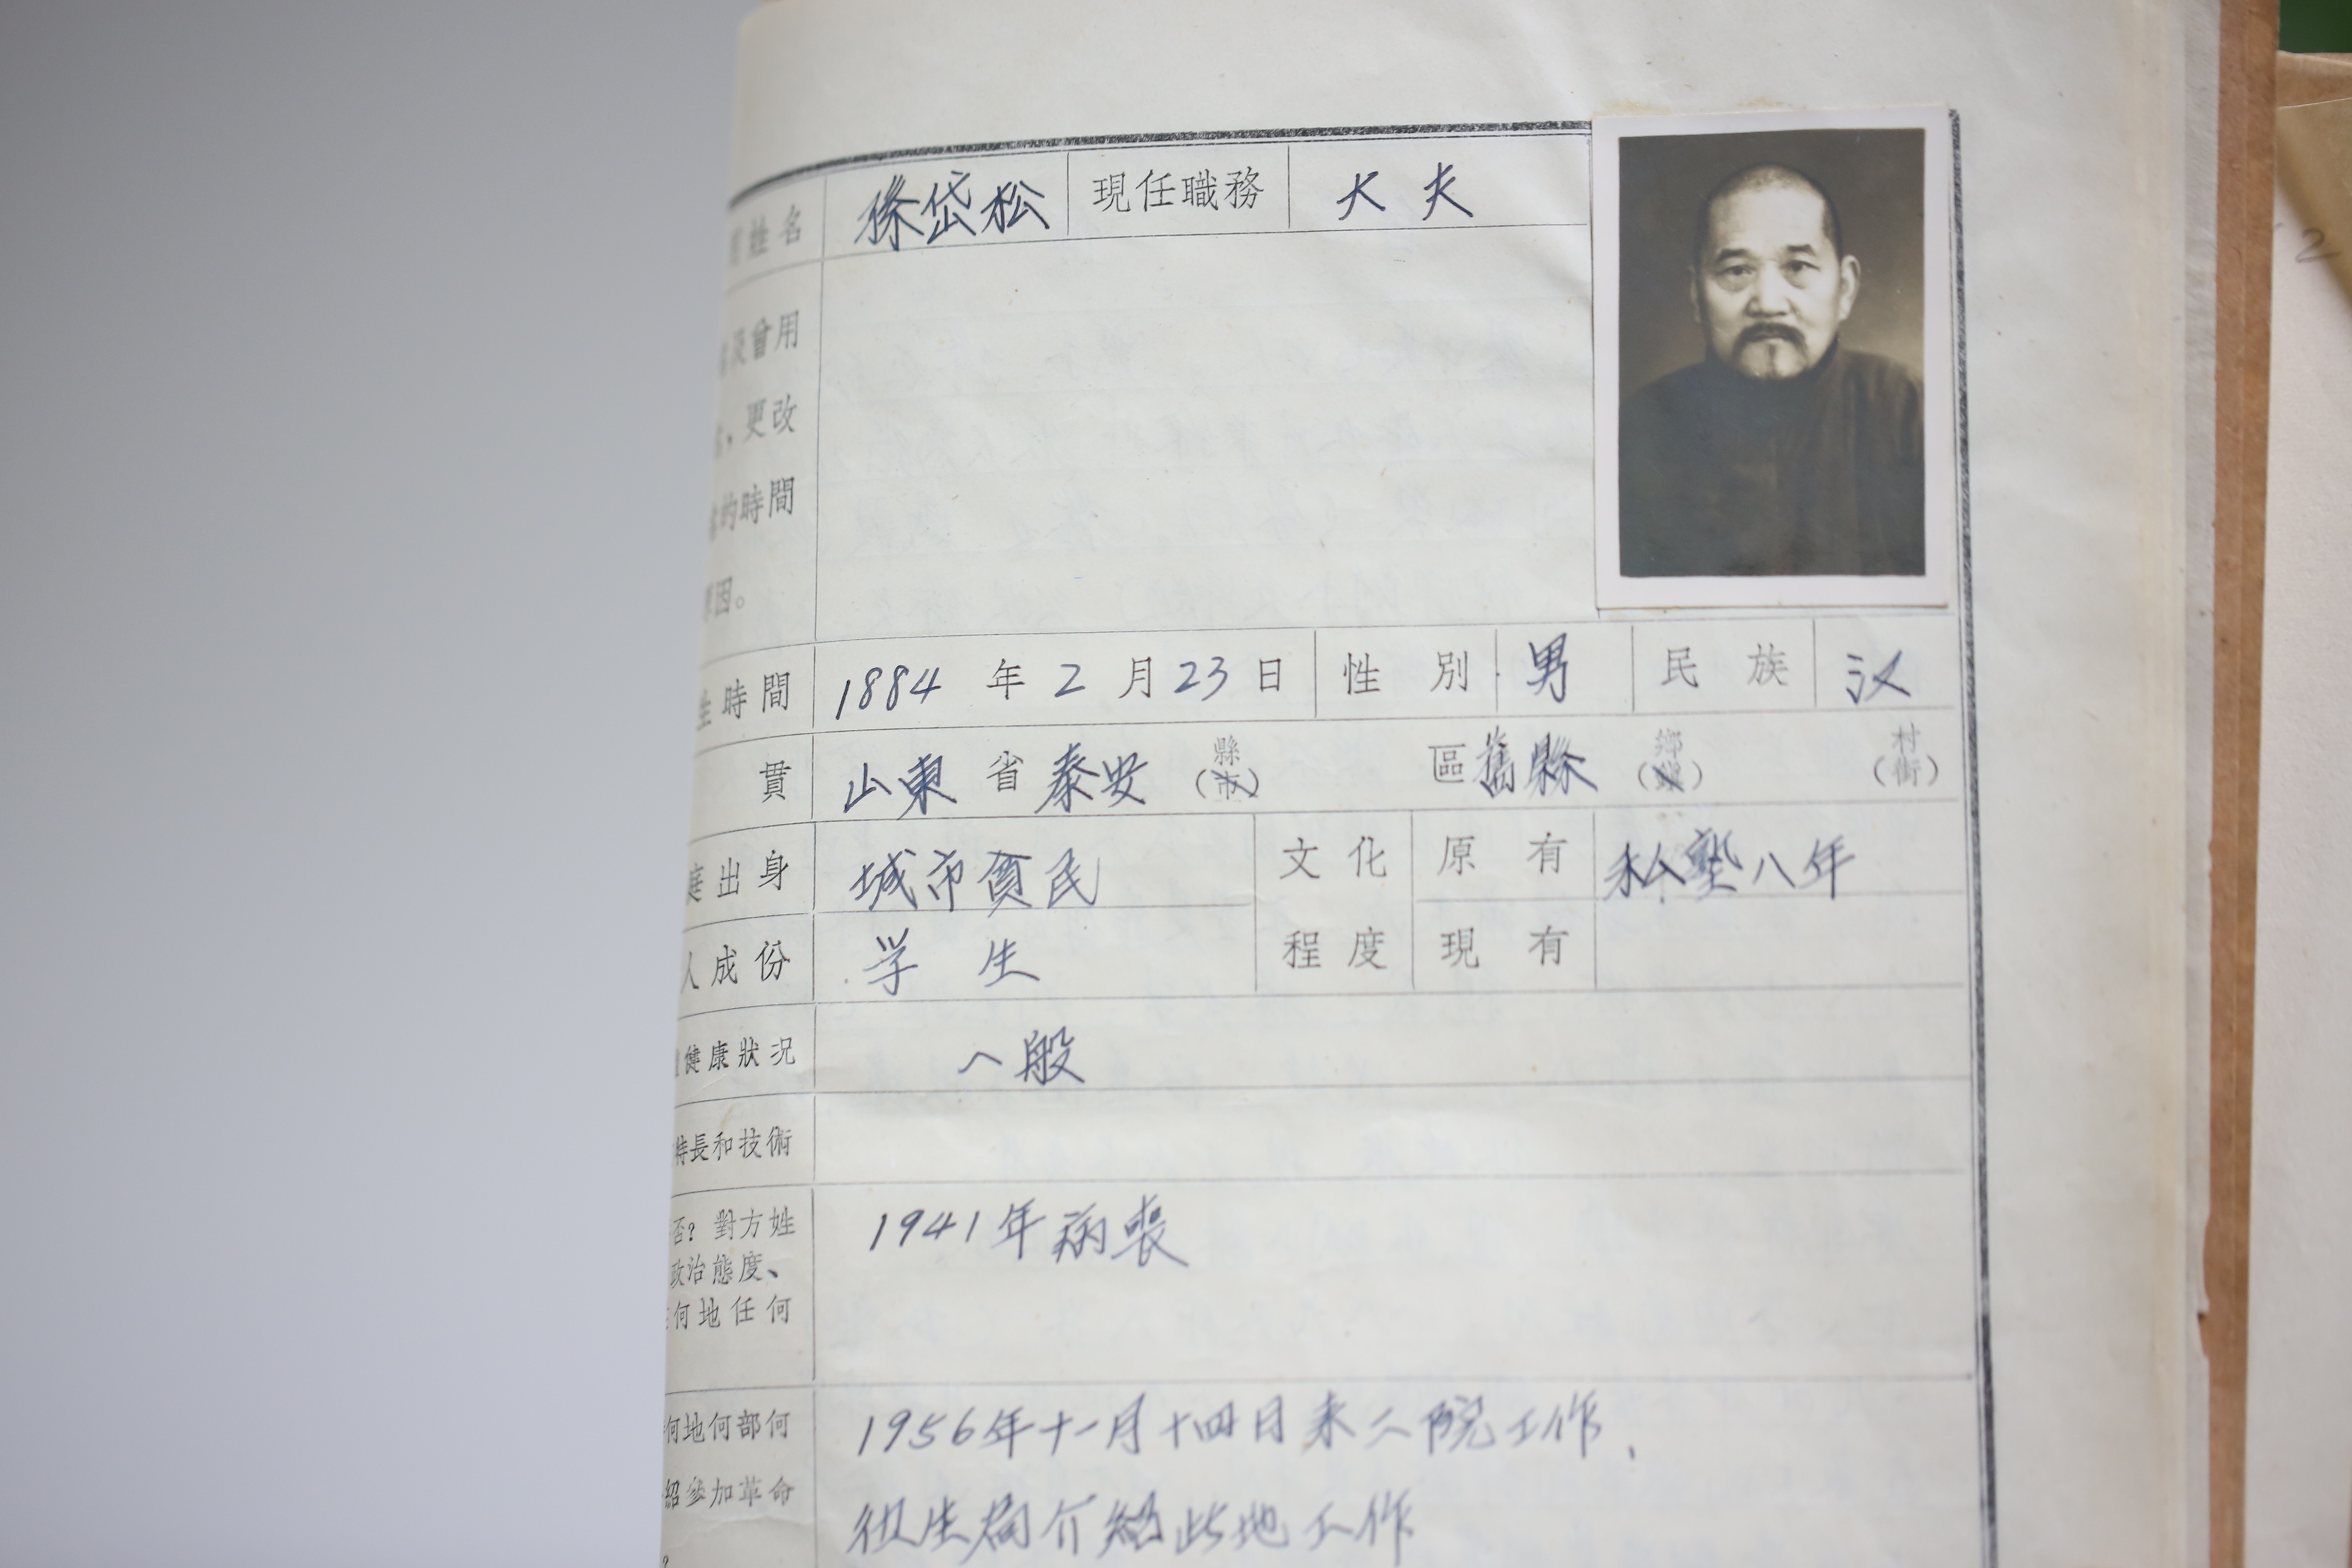 姓名 徐岱松 現任職務 大夫
曾用
更改
的時間
因。
時間 1884 年 2 月 23 日 性別 男 民族 汉
貫 山東 省 泰安 (縣市) 區 舊縣 (鄉鎮) (村街)
庭出身 城市貧民 文化 原有 私塾八年
人成份 学生 程度 現有
健康狀况 一般
特長和技術
否？對方姓 1941年病丧
政治態度、
何地任何
何地何部何 1956年十一月十四日来二院工作.
紹參加革命 卫生局介紹此地工作
2